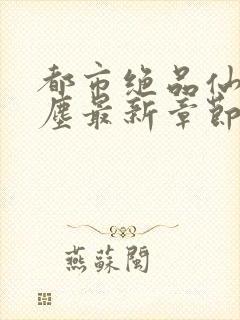 都市绝品仙
塵最新章節
燕蘇閩